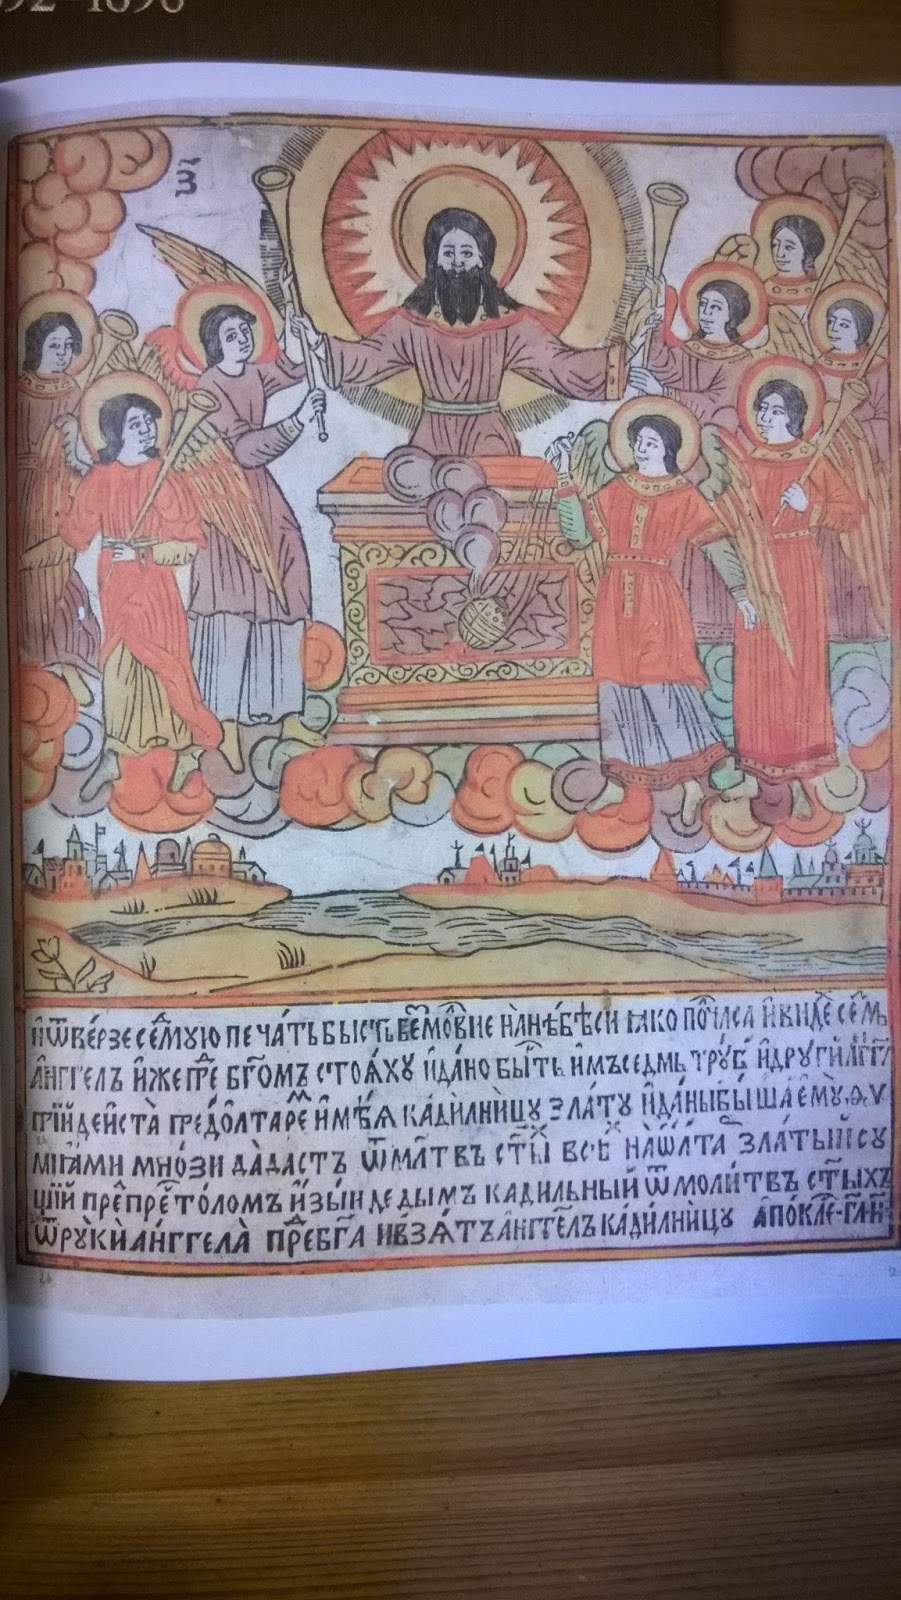 92-1696
И҃
И҆ѿве́рзе се́дмꙋю печа́ть бысть безмо́лвїе на́ не́бѣси ꙗко поⷧ҇ часа и҆ виⷣе се́дмь
а҆́нгг҃елъ и҆́же преⷣ бг҃омъ стоѧ́хꙋ и҆ да́но бы́ть и҆́мъ седмь трꙋ́бъ и҆ дрꙋгі́й а҆́гг҃л
прїйде и҆ ста̀ предо́лтаре́мъ и҆мѣ́ѧ кади́лницꙋ зла́тꙋ и҆ да́ны бы́ша е҆мꙋ̀ ѳѷ
міѧ́ми мно́зи да да́стъ ѿ моли́твъ ст҃ы́хъ всѣ́хъ на ѻ҆лта златы́й сꙋ
щій преⷣ прⷭ҇то́ломъ и҆ изы́нде дымъ кадильный ѿ моли́твъ ст҃ыхъ
ѿ рꙋ́ки а́нггела̀ преⷣ бг҃а и взѧ́тъ а҆́нгг҃елъ кади́лницꙋ а҆пока́л гл҃ и҃
26